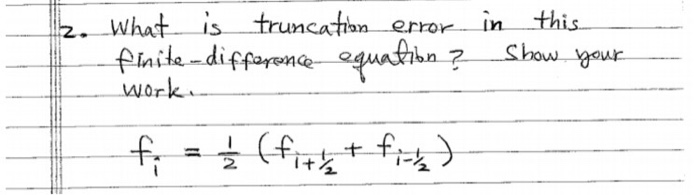 2. What is truncation error in this
finite-difference equation? Show your
work.
f_i = 1/2 (f_{i+1/2} + f_{i-1/2})